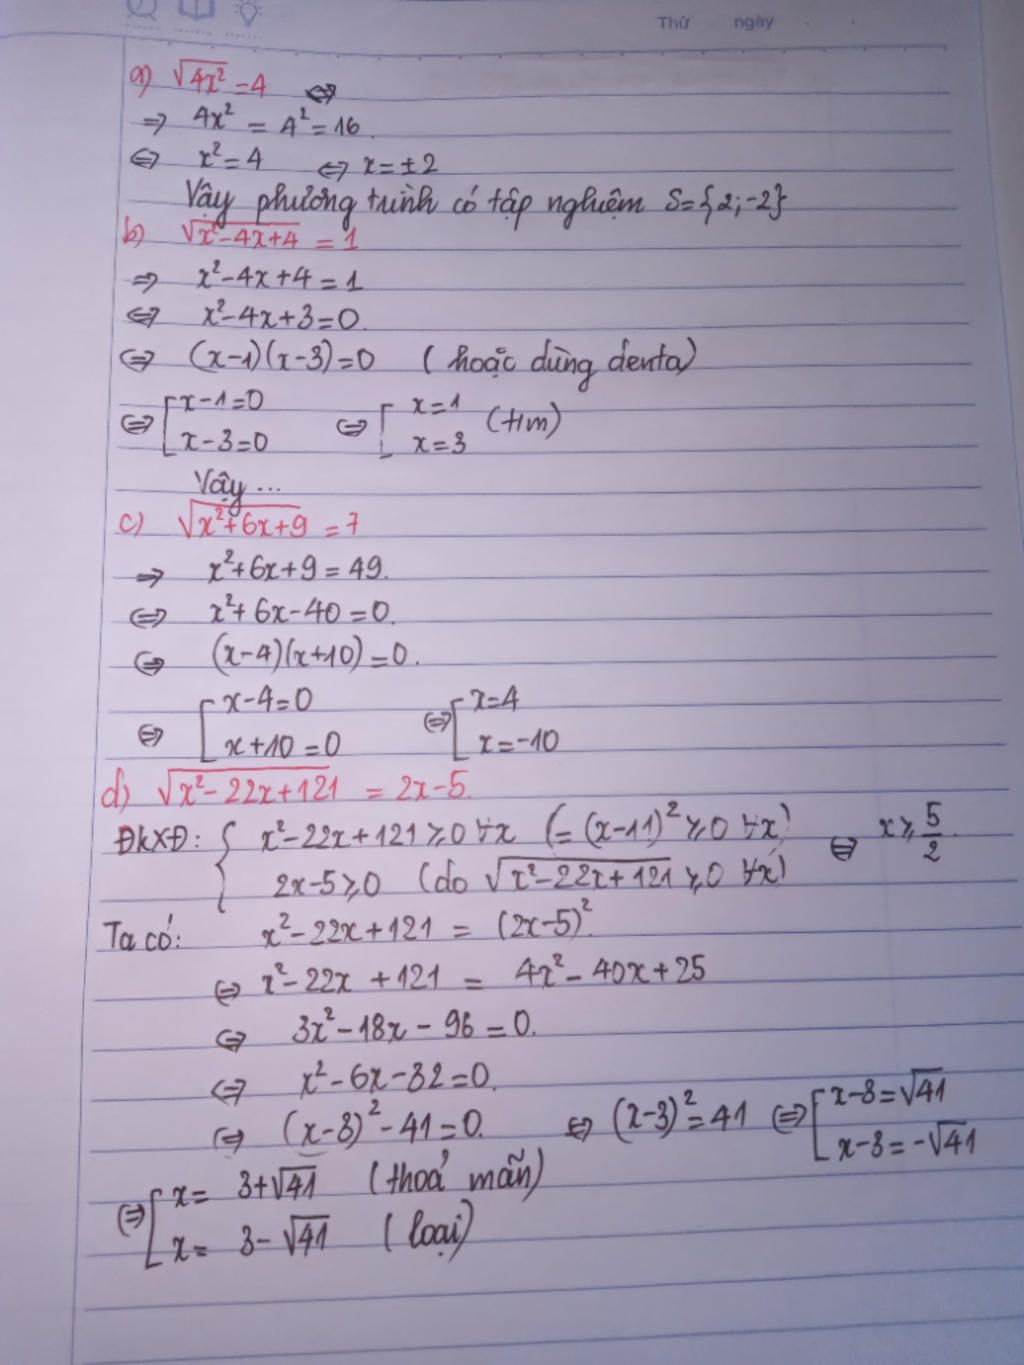 Thứ ngày
a) √4x² = 4 ⇔
⇒ 4x² = 4² = 16.
⇔ x² = 4 ⇔ x = ±2
Vậy phương trình có tập nghiệm S={2;-2}
b) √x²-4x+4 = 1
⇒ x²-4x+4 = 1
⇔ x²-4x+3=0.
⇔ (x-1)(x-3)=0 (hoặc dùng denta)
⇔ [x-1=0 ⇔ [x=1 (t/m)
x-3=0 x=3
Vậy ...
c) √x²+6x+9 = 7
⇒ x²+6x+9 = 49.
⇔ x²+6x-40=0.
⇔ (x-4)(x+10)=0.
⇔ [x-4=0 ⇔ [x=4
x+10=0 x=-10
d) √x²-22x+121 = 2x-5.
ĐKXĐ: { x²-22x+121 ⩾0 ∀x (=(x-11)² ⩾0 ∀x) ⇔ x⩾ 5/2.
2x-5⩾0 (do √x²-22x+121 ⩾0 ∀x)
Ta có: x²-22x+121 = (2x-5)².
⇔ x²-22x+121 = 4x²-40x+25
⇔ 3x²-18x-96=0.
⇔ x²-6x-32=0.
⇔ (x-3)²-41=0. ⇔ (x-3)²=41 ⇔ [x-3=√41
x-3=-√41
⇔ [x= 3+√41 (thoả mãn)
x= 3-√41 (loại)